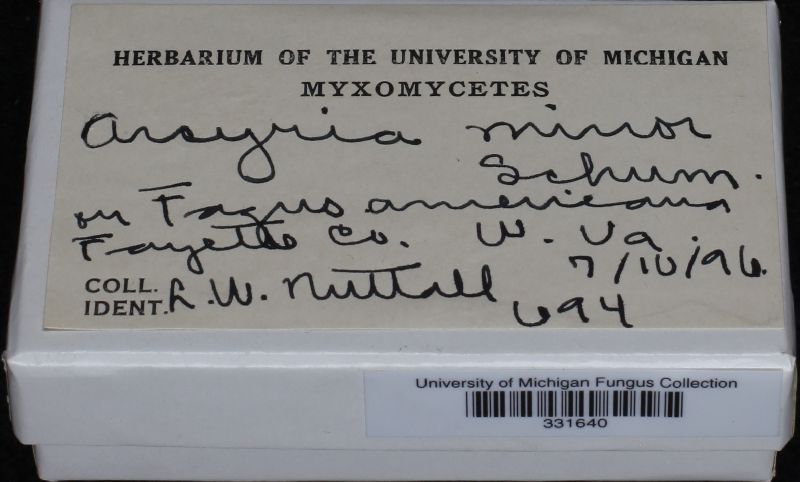 HERBARIUM OF THE UNIVERSITY OF MICHIGAN
MYXOMYCETES
Arcyria minor
Schum.
on Fagus americana
Fayette Co. W. Va.
7/10/96.
COLL.
IDENT. L.W. Nuttall
694
University of Michigan Fungus Collection
331640